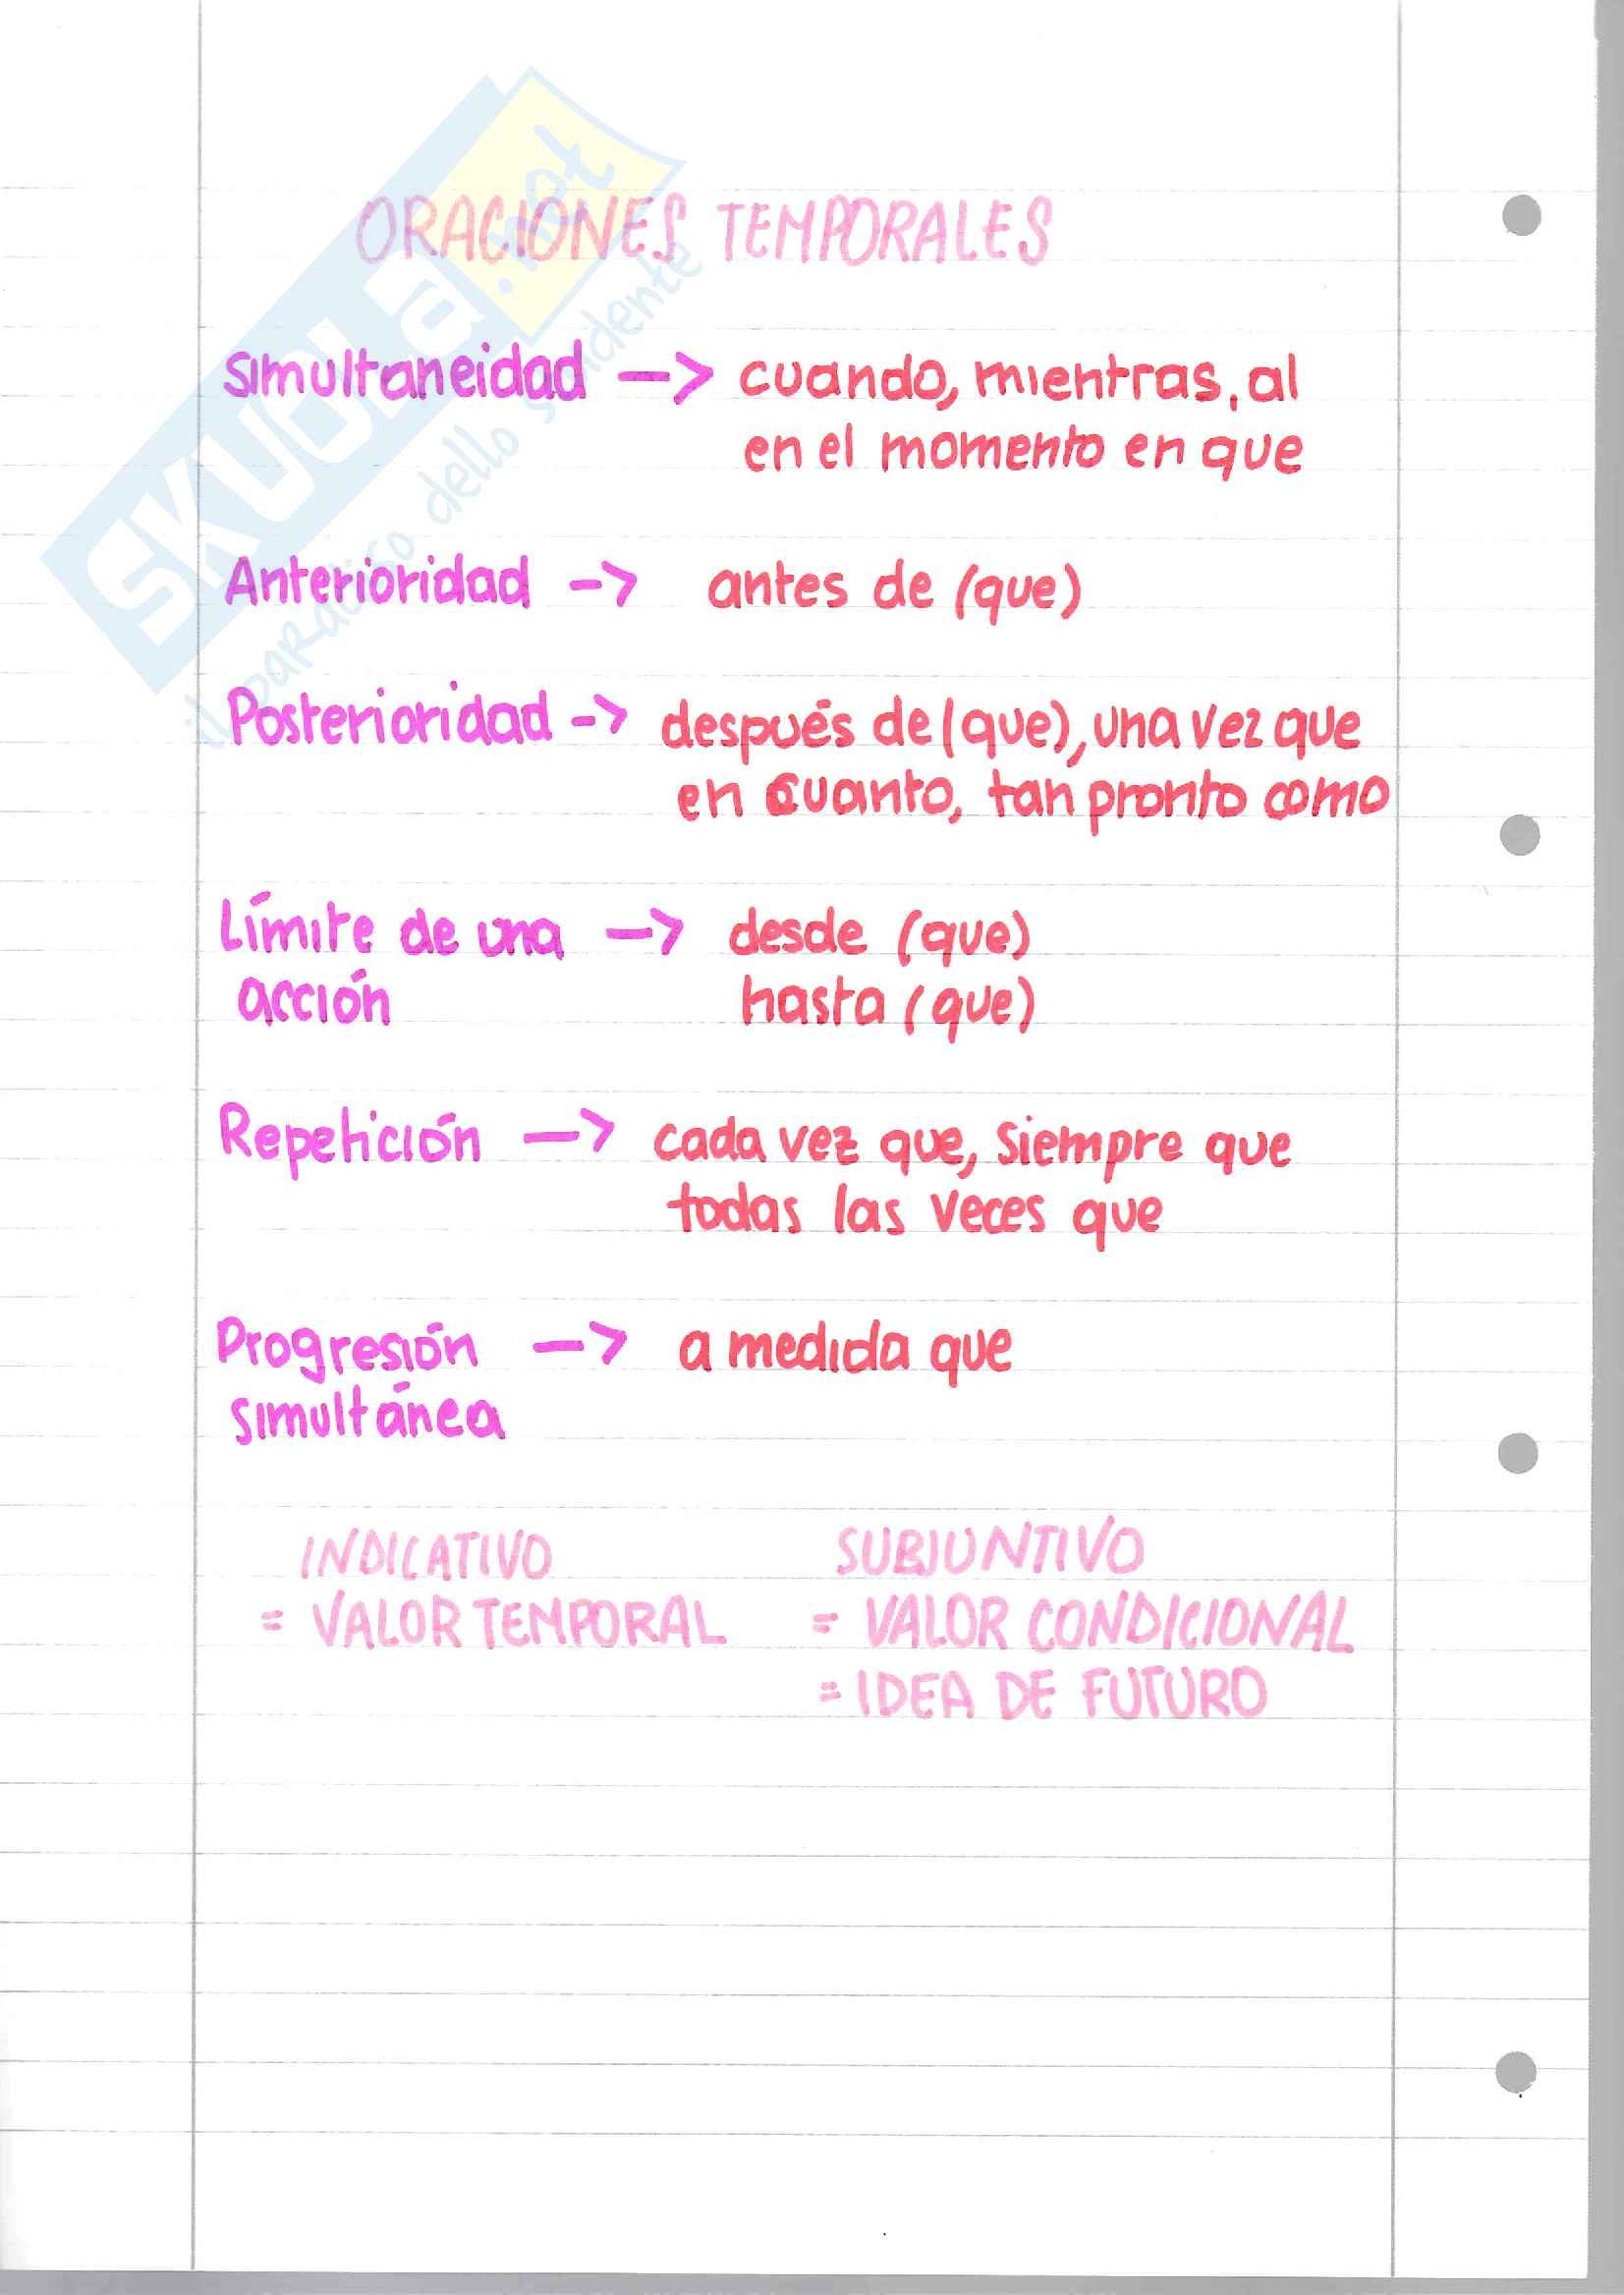 SKUOLA.net
il paradiso dello studente
ORACIONES TEMPORALES
Simultaneidad –> cuando, mientras, al
en el momento en que
Anterioridad –> antes de (que)
Posterioridad –> después de (que), una vez que
en cuanto, tan pronto como
Límite de una –> desde (que)
acción hasta (que)
Repetición –> cada vez que, siempre que
todas las veces que
Progresión –> a medida que
simultánea
INDICATIVO SUBJUNTIVO
= VALOR TEMPORAL = VALOR CONDICIONAL
= IDEA DE FUTURO